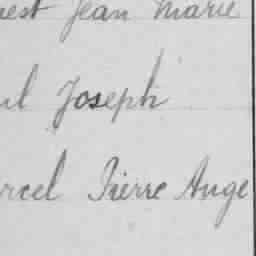 nest Jean Marie
ul Joseph
rcel Pierre Ange